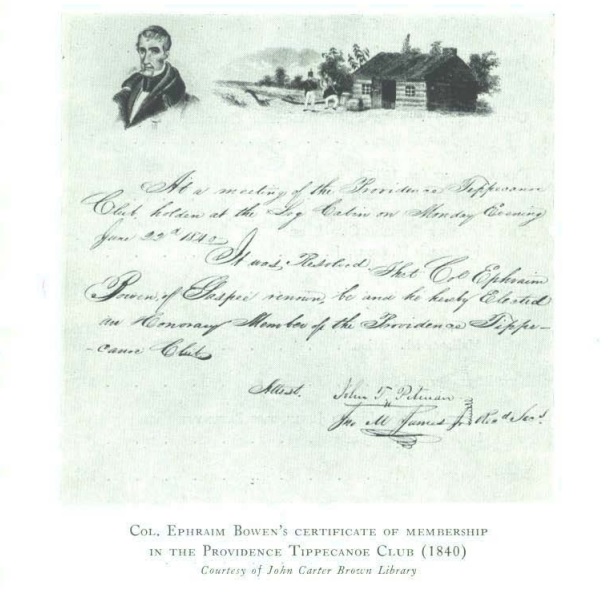 At a meeting of the Providence Tippecanoe
Club, holden at the Log Cabin on Monday Evening
June 22d 1840
It was, Resolved That Col Ephraim
Bowen, of Gaspee renown, be and he hereby Elected
an Honorary Member of the Providence Tippe-
-canoe Club
Attest. John T. Pitman
Jno M James Jr
COL. EPHRAIM BOWEN'S CERTIFICATE OF MEMBERSHIP
IN THE PROVIDENCE TIPPECANOE CLUB (1840)
Courtesy of John Carter Brown Library